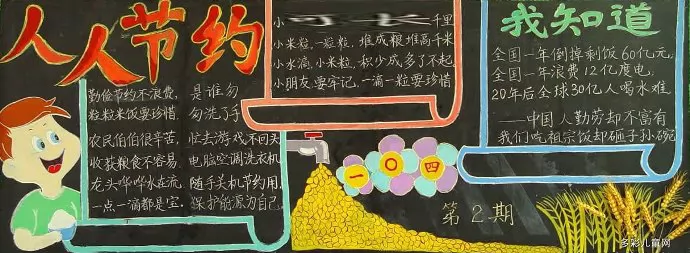 人人节约
勤俭节约不浪费,
粒粒米饭要珍惜.
农民伯伯很辛苦,
收获粮食不容易.
龙头哗哗水在流,
一点一滴都是宝.
是谁匆
匆洗了手
忙去游戏不回头
电脑空调洗衣机
随手关机节约用,
保护能源为自己.
小 千里
小米粒,一粒粒,堆成粮堆高千米
小水滴,小米粒,积少成多了不起
小朋友要牢记,一滴一粒要珍惜
我知道
全国一年倒掉剩饭60亿元,
全国一年浪费12亿度电,
20年后全球30亿人喝水难.
——中国人勤劳却不富有
我们吃祖宗饭却砸子孙碗
一〇四
第2期
多彩儿童网